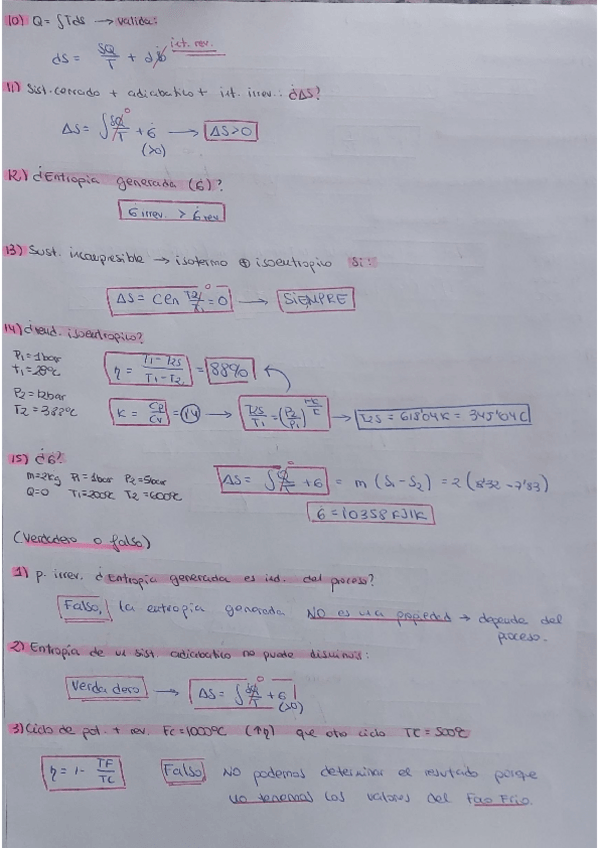 10) Q = ∫Tds → valida:
ds = δQ/T + dσ int. rev.
11) Sist. cerrado + adiabatico + int. irrev.: ¿ΔS?
ΔS = ∫δQ/T⁰ + σ → ΔS>0
(>0)
12) ¿Entropia generada (σ)?
σ irrev. > σ rev
13) Sust. incompresible → isotermo ⊕ isoentropico si:
ΔS = C ln T2/T1 = 0 → SIEMPRE
14) ¿rend. isoentropico?
P1 = 1 bar
t1 = 28ºC
P2 = 12 bar
T2 = 388ºC
η = T1 - T2s / T1 - T2 = 88%
K = Cp/Cv = 1'4 → T2s/T1 = (P2/P1)^K-1/K → T2s = 618'04K = 345'04C
15) ¿σ?
m = 2kg P1 = 1bar P2 = 5bar
Q=0 T1 = 200ºC T2 = 600ºC
ΔS = ∫δQ/T⁰ + σ = m (S1 - S2) = 2 (8'32 - 7'83)
σ = 1'0358 KJ/K
(Verdadero o falso)
1) p. irrev. ¿Entropia generada es ind. del proceso?
Falso, la entropia generada NO es una propiedad → depende del
proceso.
2) Entropía de un sist. adiabatico no puede disminuir:
Verdadero → ΔS = ∫δQ/T⁰ + σ
(>0)
3) Ciclo de pot. + rev. Fc = 1000ºC (↑η) que otro ciclo TC = 500ºC
η = 1 - TF/TC Falso NO podemos determinar el resultado porque
no tenemos los valores del Foco Frio.